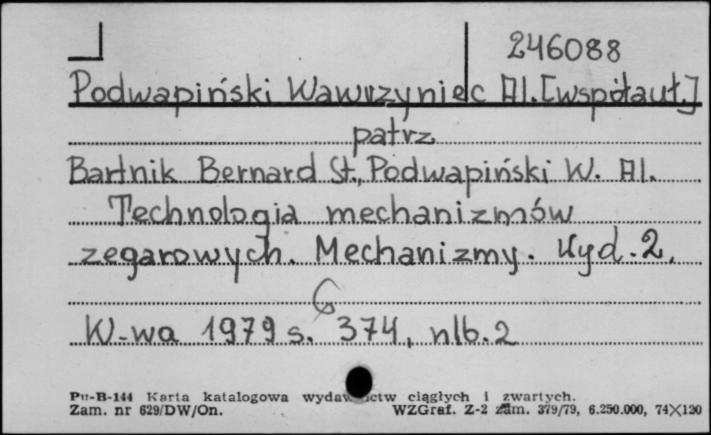 246088
Podwapiński Wawrzyniec Al. [współaut.]
patrz
Bartnik Bernard St., Podwapiński W. Al.
Technologia mechanizmów
zegarowych. Mechanizmy. Wyd. 2.
W-wa 1979 s. 374, nlb. 2
Pu-B-144 Karta katalogowa wydawnictw ciągłych i zwartych.
Zam. nr 629/DW/On. WZGraf. Z-2 zam. 379/79, 6.250.000, 74×120